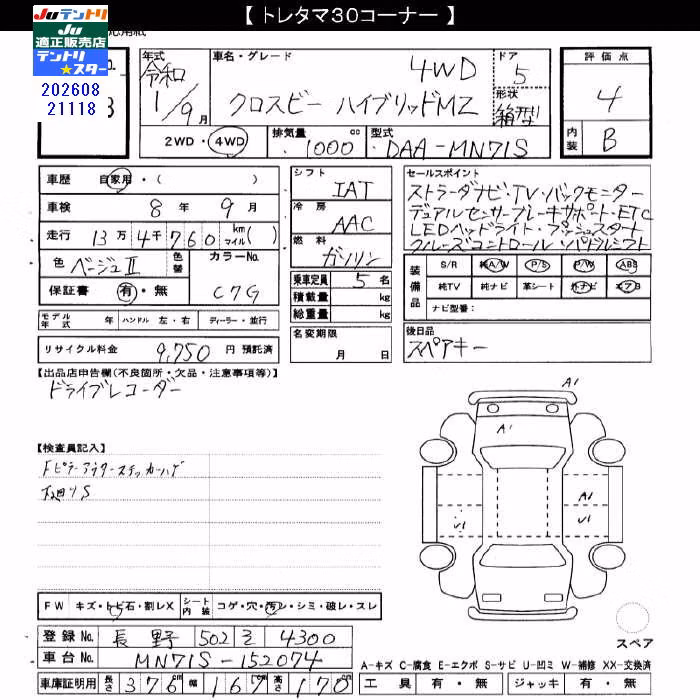 【トレタマ30コーナー】
Juテントリ
Ju
適正販売店
テントリ
★スター
202608
21118
年式 車名・グレード ドア 評価点
令和 4WD 5
1/9月 クロスビー ハイブリッドMZ 形状 箱型 4
2WD・4WD 排気量 1000 cc 型式 DAA-MN71S 内装 B
車歴 自家用・( )
車検 8年 9月
走行 13万4千760 km マイル( )
色 ベージュⅡ 色替 カラーNo.
保証書 有・無 C7G
モデル年式 年 ハンドル 左・右 ディーラー・並行
リサイクル料金 9,750 円 預託済
シフト IAT
冷房 AAC
燃料 ガソリン
乗車定員 5 名
積載量 kg
総重量 kg
名変期限 月 日
セールスポイント
ストラーダナビ・TV・バックモニター
デュアルセンサーブレーキサポート・ETC
LEDヘッドライト・プッシュスタート
クルーズコントロール・パドルシフト
装備品 S/R 純A/W P/S P/W ABS
純TV 純ナビ 革シート 外ナビ エアB
ナビ型番:
後日品
スペアキー
【出品店申告欄(不良箇所・欠品・注意事項等)】
ドライブレコーダー
【検査員記入】
Fピラーアウターステッカーハゲ
下廻りS
A1
A1
A1
U1
A1
FW キズ・トビ石・割レX シート内装 コゲ・穴・汚レ・シミ・破レ・スレ
登録No. 長野 502 る 4300
車台No. MN71S-152074
車庫証明用 長さ 376cm 幅 167cm 高さ 170cm
スペア
A-キズ C-腐食 E-エクボ S-サビ U-凹ミ W-補修 XX-交換済
工具 有・無 ジャッキ 有・無